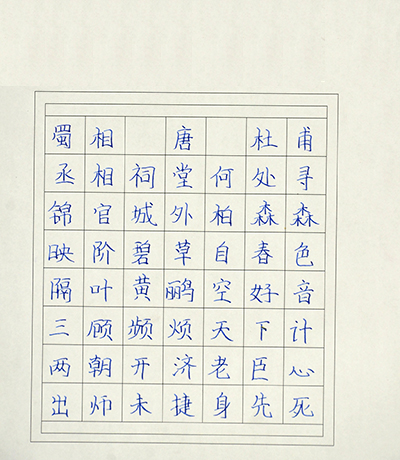 蜀相 唐 杜甫
丞相祠堂何处寻
锦官城外柏森森
映阶碧草自春色
隔叶黄鹂空好音
三顾频烦天下计
两朝开济老臣心
出师未捷身先死